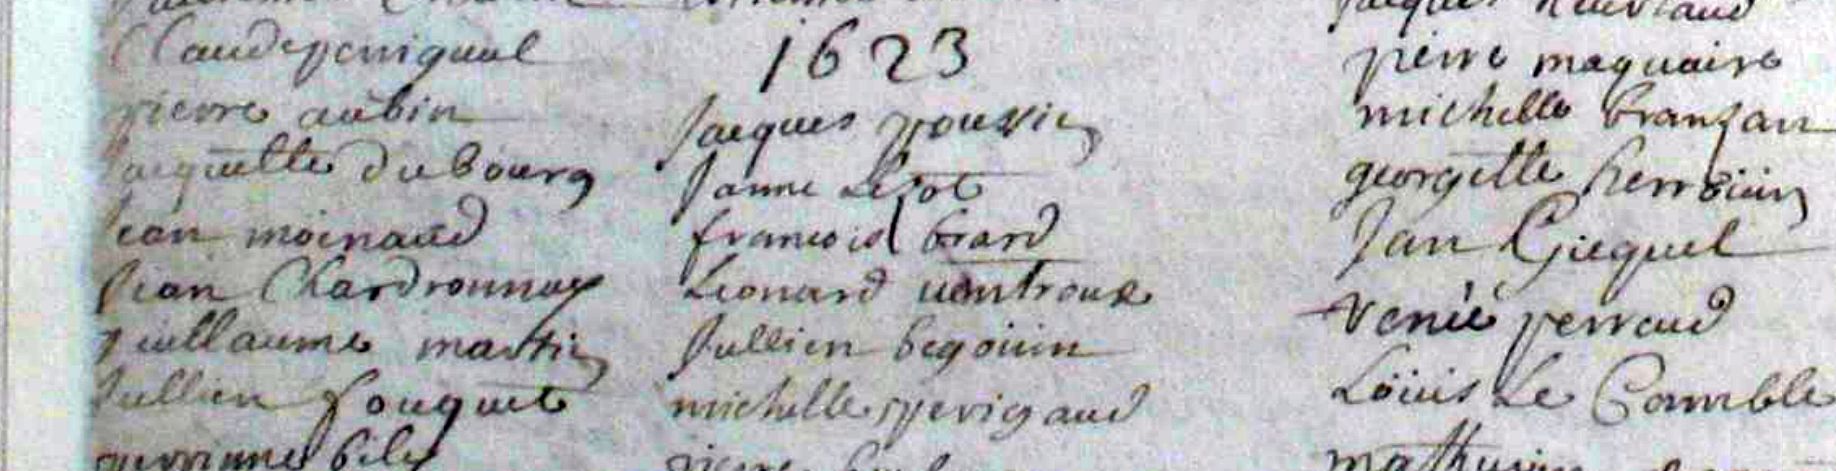 Claude penigaul
pierre aubin
Jacquette dubourg
Jean moinaud
Jean Chardronnay
guillaume martin
Jullien fouquet
perrinne bily
1623
Jacques pouvin
Janne Lezot
francois brard
Leonard
Jullien begouin
michelle perigaud
pierre
Jacques
pierre maquaire
michelle branzan
georgette herrouin
Jan Gicquel
renée perraud
Louis Le Comble
mathurin